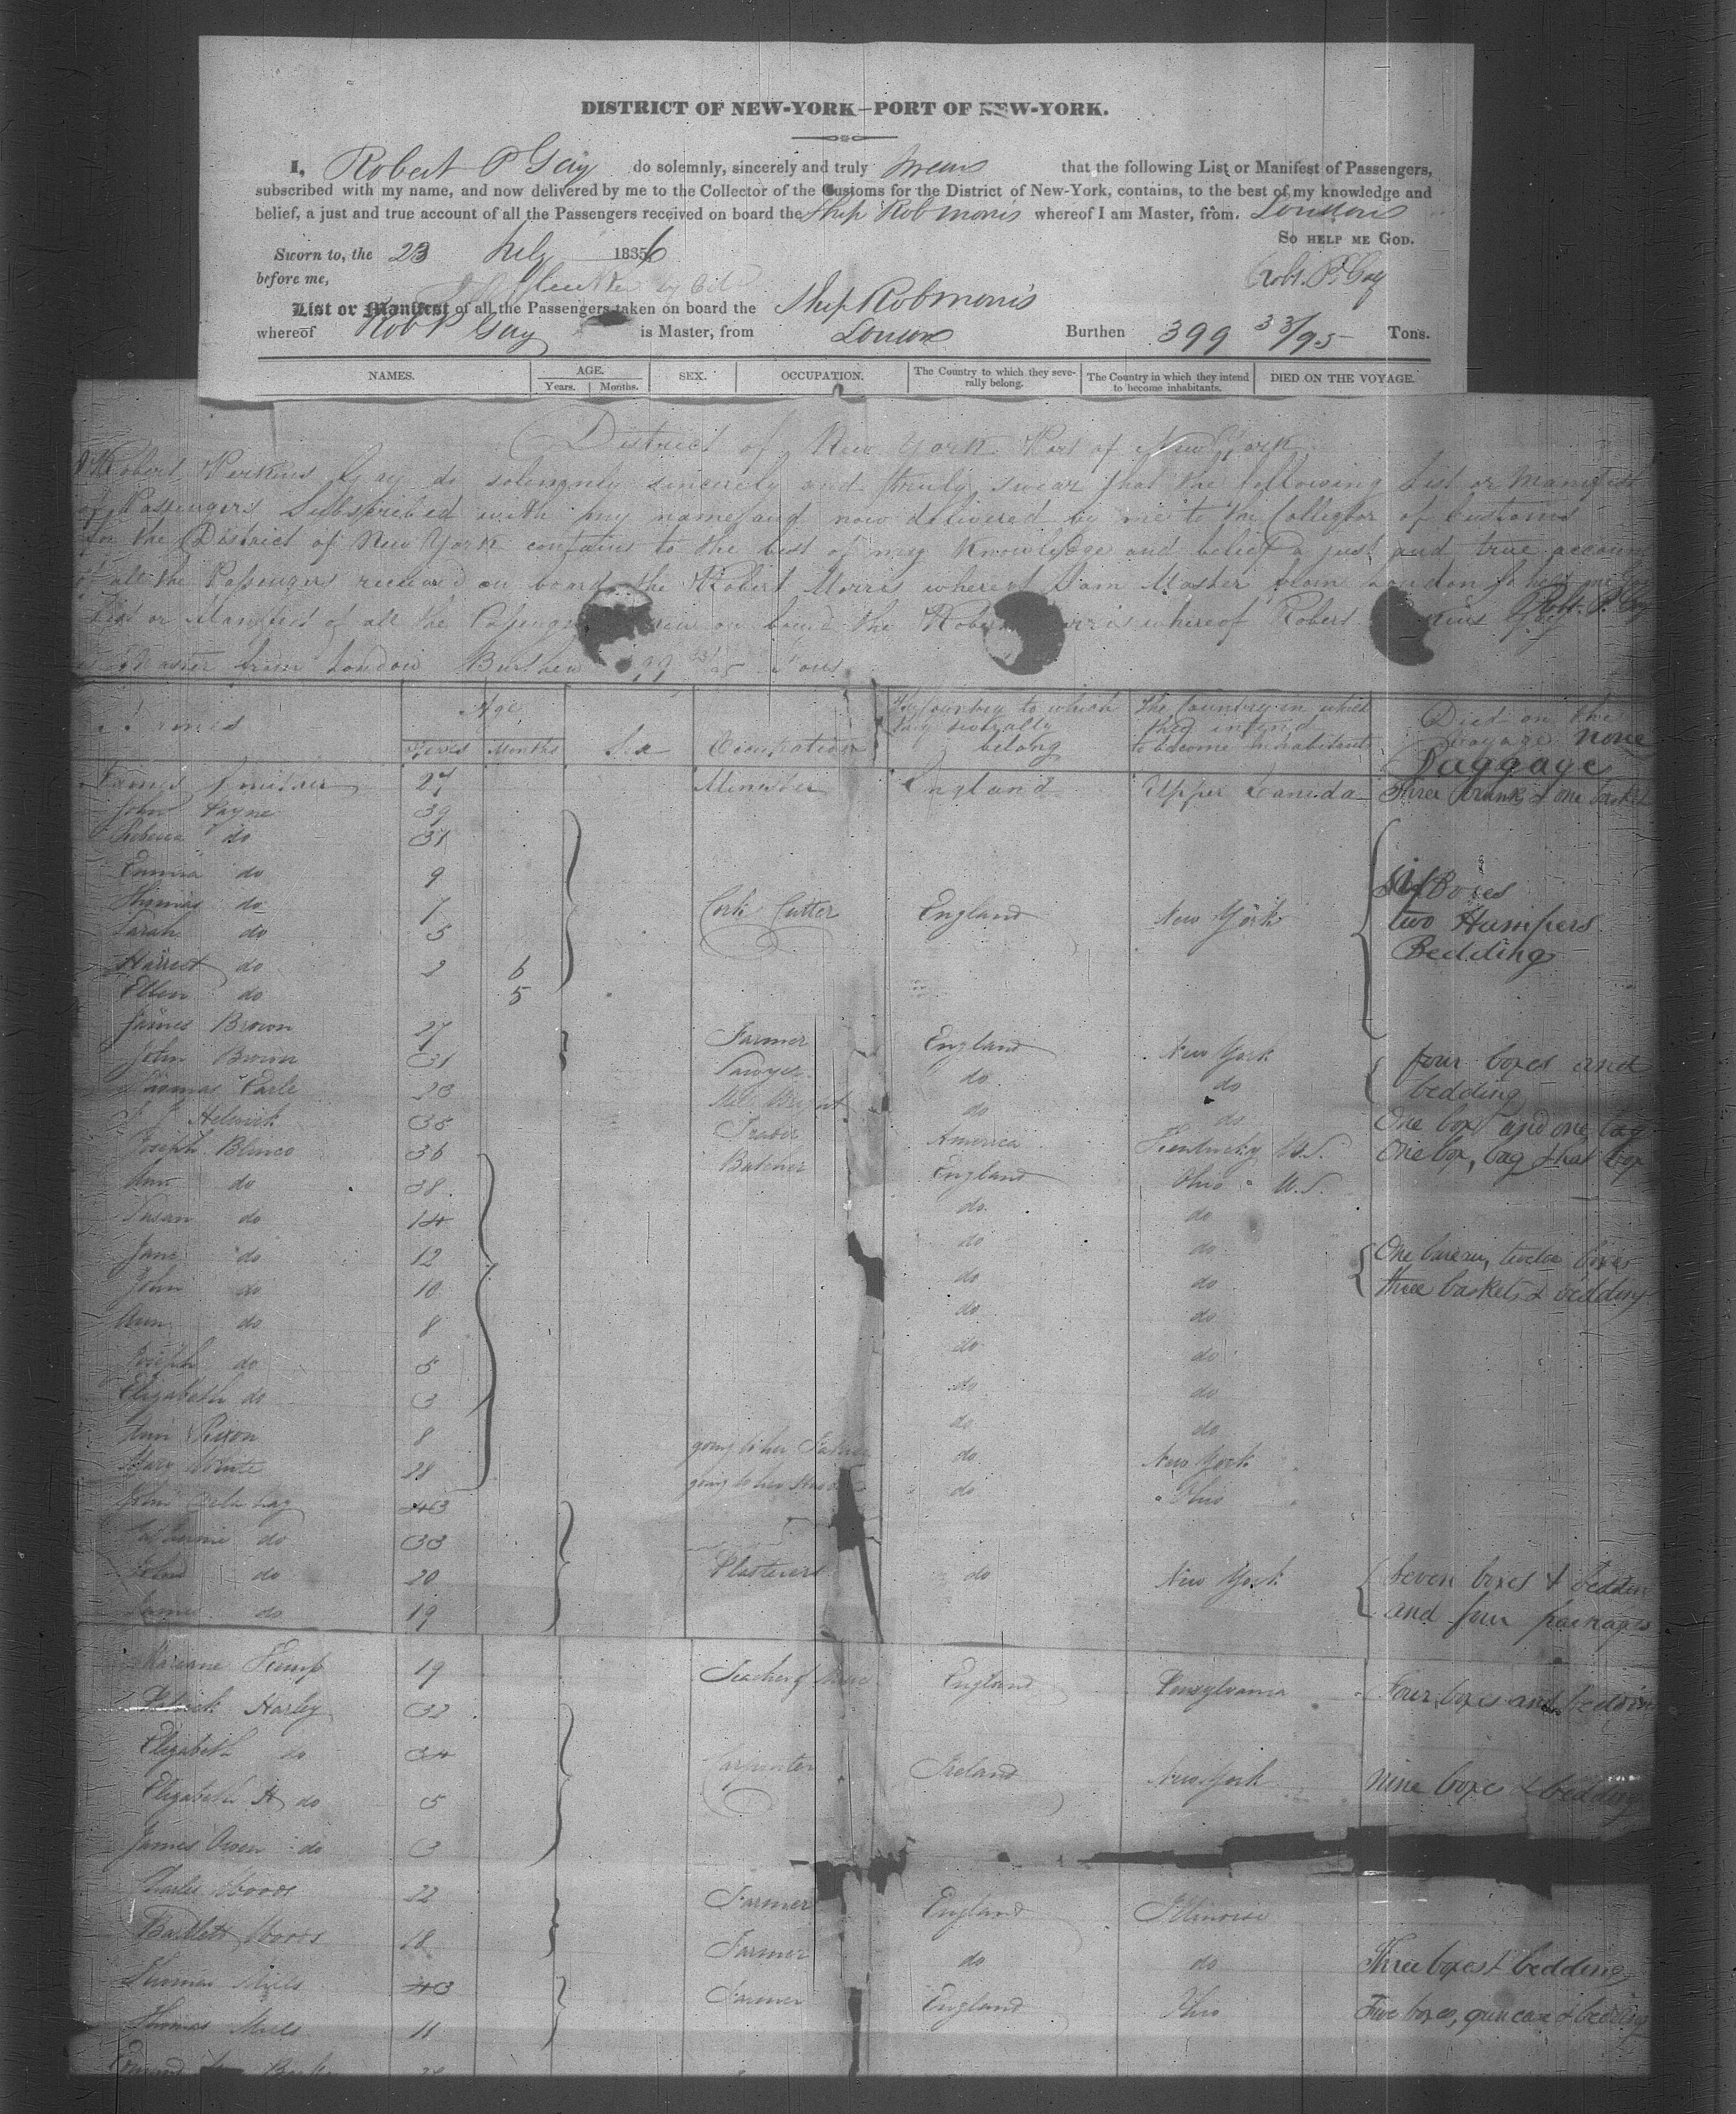 DISTRICT OF NEW-YORK—PORT OF NEW-YORK.
I, Robert P Gay do solemnly, sincerely and truly swear that the following List or Manifest of Passengers,
subscribed with my name, and now delivered by me to the Collector of the Customs for the District of New-York, contains, to the best of my knowledge and
belief, a just and true account of all the Passengers received on board the Ship Rob Morris whereof I am Master, from London
SO HELP ME GOD.
Sworn to, the 23 July 1836
before me,
Robt. P. Gay
List or Manifest of all the Passengers taken on board the Ship Rob Morris
whereof Rob P Gay is Master, from London Burthen 399 33/95 Tons.
NAMES. AGE. Years. Months. SEX. OCCUPATION. The Country to which they severally belong. The Country in which they intend to become inhabitants. DIED ON THE VOYAGE.
District of New York Port of New York
I Robert Perkins Gay do solemnly sincerely and truly swear that the following List or Manifest
of Passengers Subscribed with my name and now delivered by me to the Collector of Customs
for the District of New York contains to the best of my knowledge and belief a just and true account
of all the Passengers received on board the Robert Morris whereof I am Master from London
Robt. P. Gay
List or Manifest of all the on board the whereof Robert Gay
is Master from London Burthen 33/95 Tons
Names Age Years Months Sex Occupation The Country to which they severally belong The Country in which they intend to become Inhabitants Died on the voyage none
Baggage
James 27 Minister England Upper Canada Three trunks & one basket
John Payne 39
Rebecca do 37
Emma do 9
Thomas do 7 Cork Cutter England New York Six Boxes
Sarah do 5 two Hampers
Harriet do 2 6 Bedding
Ellen do 5
James Brown 27 Farmer England New York four boxes and
John Brown 31 Sawyer do do bedding
Thomas Earle 28 do do One box and one bag
Helwick 35 America Kentucky U.S. One box, bag & hat box
Joseph Blinco 36 Butcher England Ohio U.S.
Ann do 38 do do
Susan do 14 do do
Jane do 12 do do twelve boxes
John do 10 do do three baskets & bedding
Ann do 8 do do
Joseph do 5 do do
Elizabeth do 3 do do
Ann Rixon 8 going to her Father do New York
Mary White 28 going to her do Ohio
John 43
Catherine do 33
John do 20 Plasterers do New York Seven boxes & bedding
James do 19 and four packages
Kemp 19 Teacher of England Pensylvania Four boxes and bedding
Patrick Harley 32
Elizabeth do 34 Carpenter Ireland New York Nine boxes & bedding
Elizabeth H do 5
James Owen do 3
Charles Woods 22 Farmer England Illinois
Bartlett Woods 18 Farmer do do Three boxes & bedding
Thomas Mills 43 Farmer England Ohio Five boxes, gun case & bedding
Thomas Mills 11